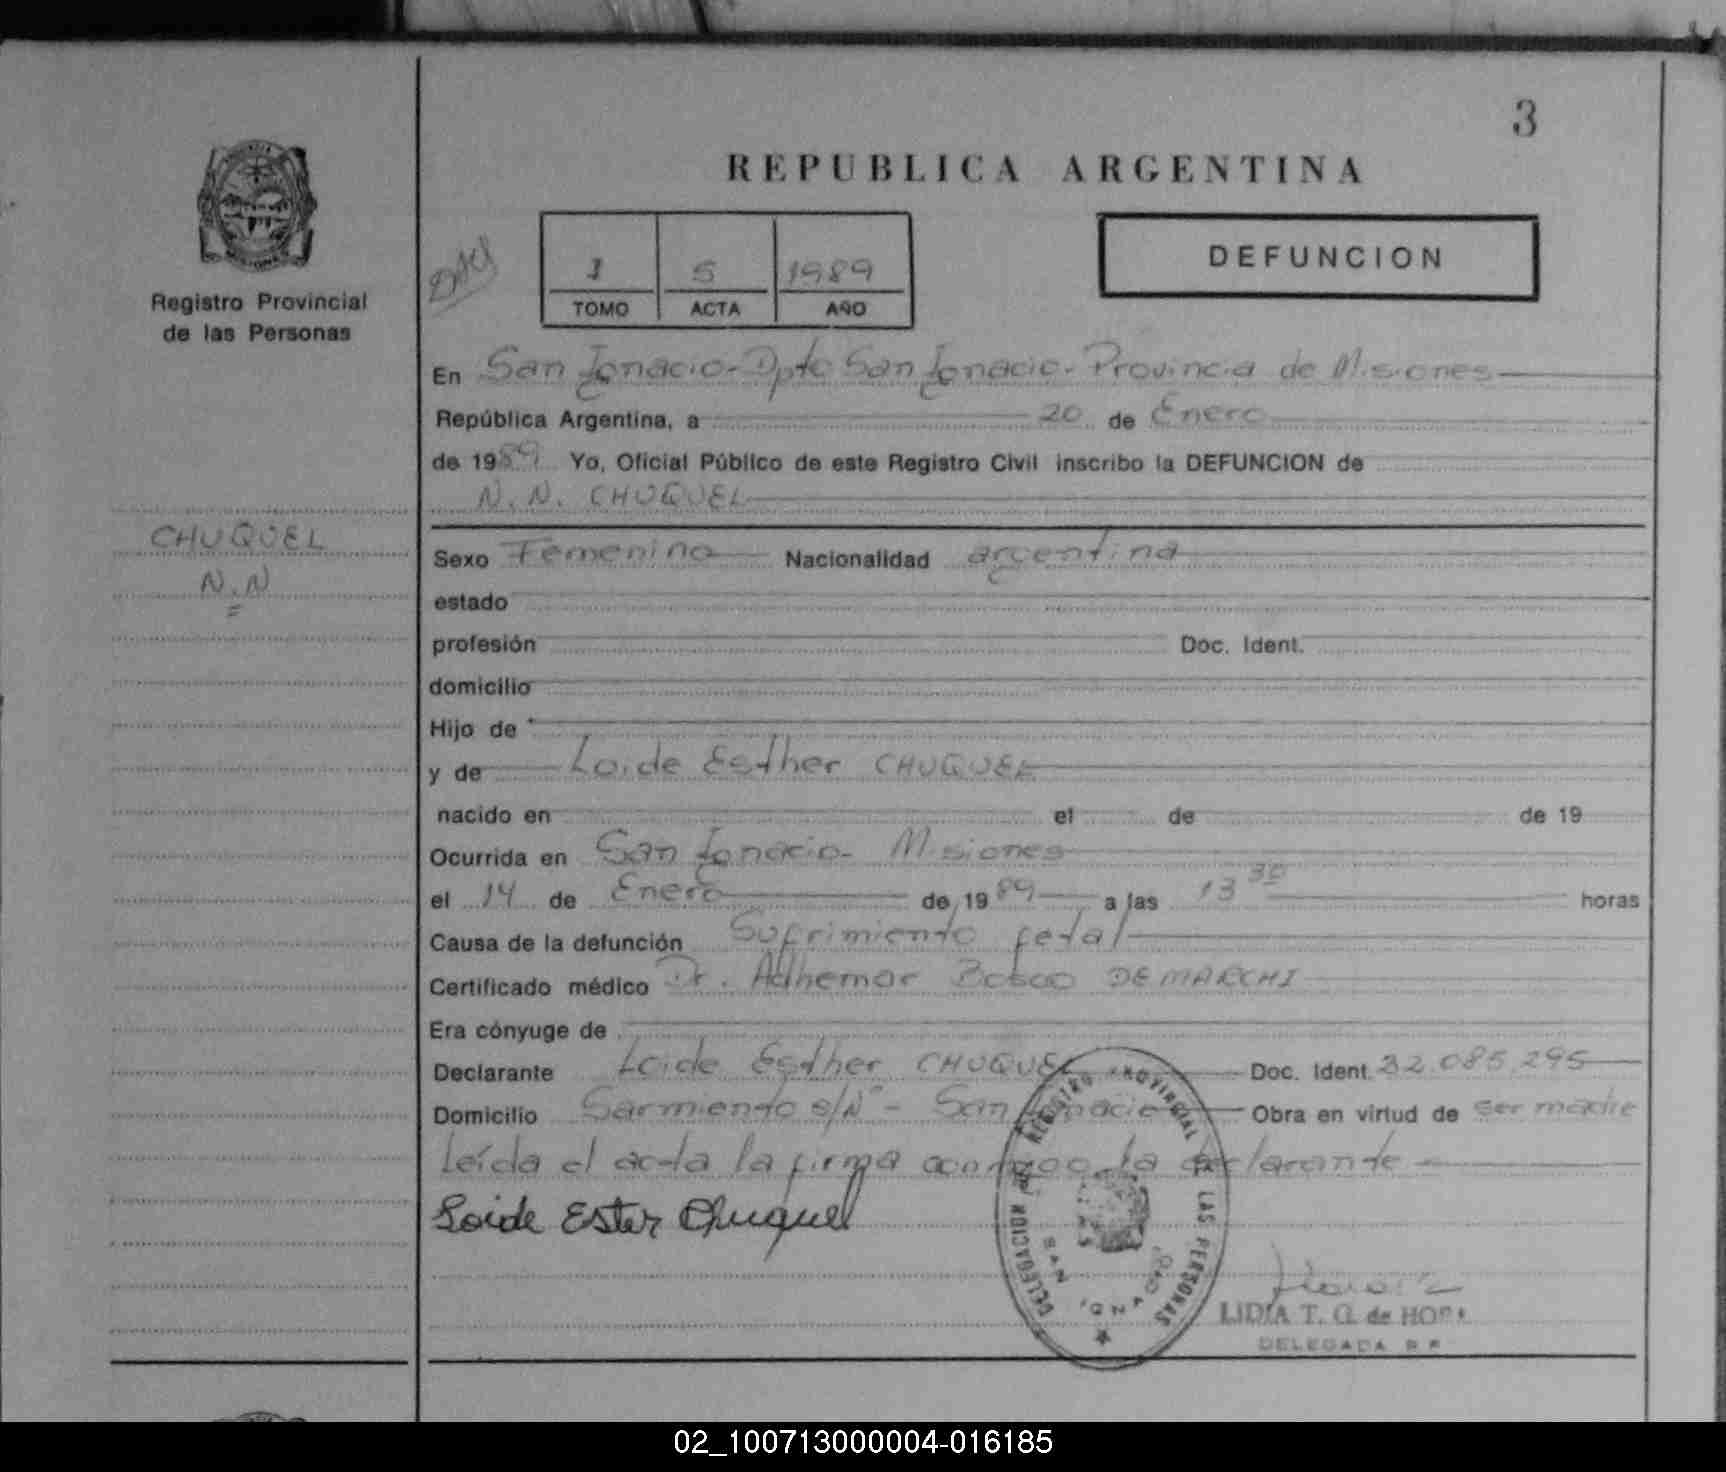 3
REPUBLICA ARGENTINA
1 5 1989
TOMO ACTA AÑO
DEFUNCION
Registro Provincial
de las Personas
En San Ignacio - Dpto San Ignacio - Provincia de Misiones
República Argentina, a 20 de Enero
de 1989 Yo, Oficial Público de este Registro Civil inscribo la DEFUNCION de
N. N. CHUQUEL
CHUQUEL
N.N
Sexo Femenino Nacionalidad argentina
estado
profesión Doc. Ident.
domicilio
Hijo de
y de Loide Esther CHUQUEL
nacido en el de de 19
Ocurrida en San Ignacio - Misiones
el 14 de Enero de 1989 a las 13 30 horas
Causa de la defunción Sufrimiento fetal
Certificado médico Dr. Adhemar Bosco DEMARCHI
Era cónyuge de
Declarante Loide Esther CHUQUEL Doc. Ident. 32.085.295
Domicilio Sarmiento s/Nº - San Ignacio Obra en virtud de ser madre
Leída el acta la firma conmigo la declarante
Loide Ester Chuquel
DELEGACION DEL REGISTRO PROVINCIAL DE LAS PERSONAS
SAN IGNACIO
LIDIA T. G. de
DELEGADA R P
02_100713000004-016185